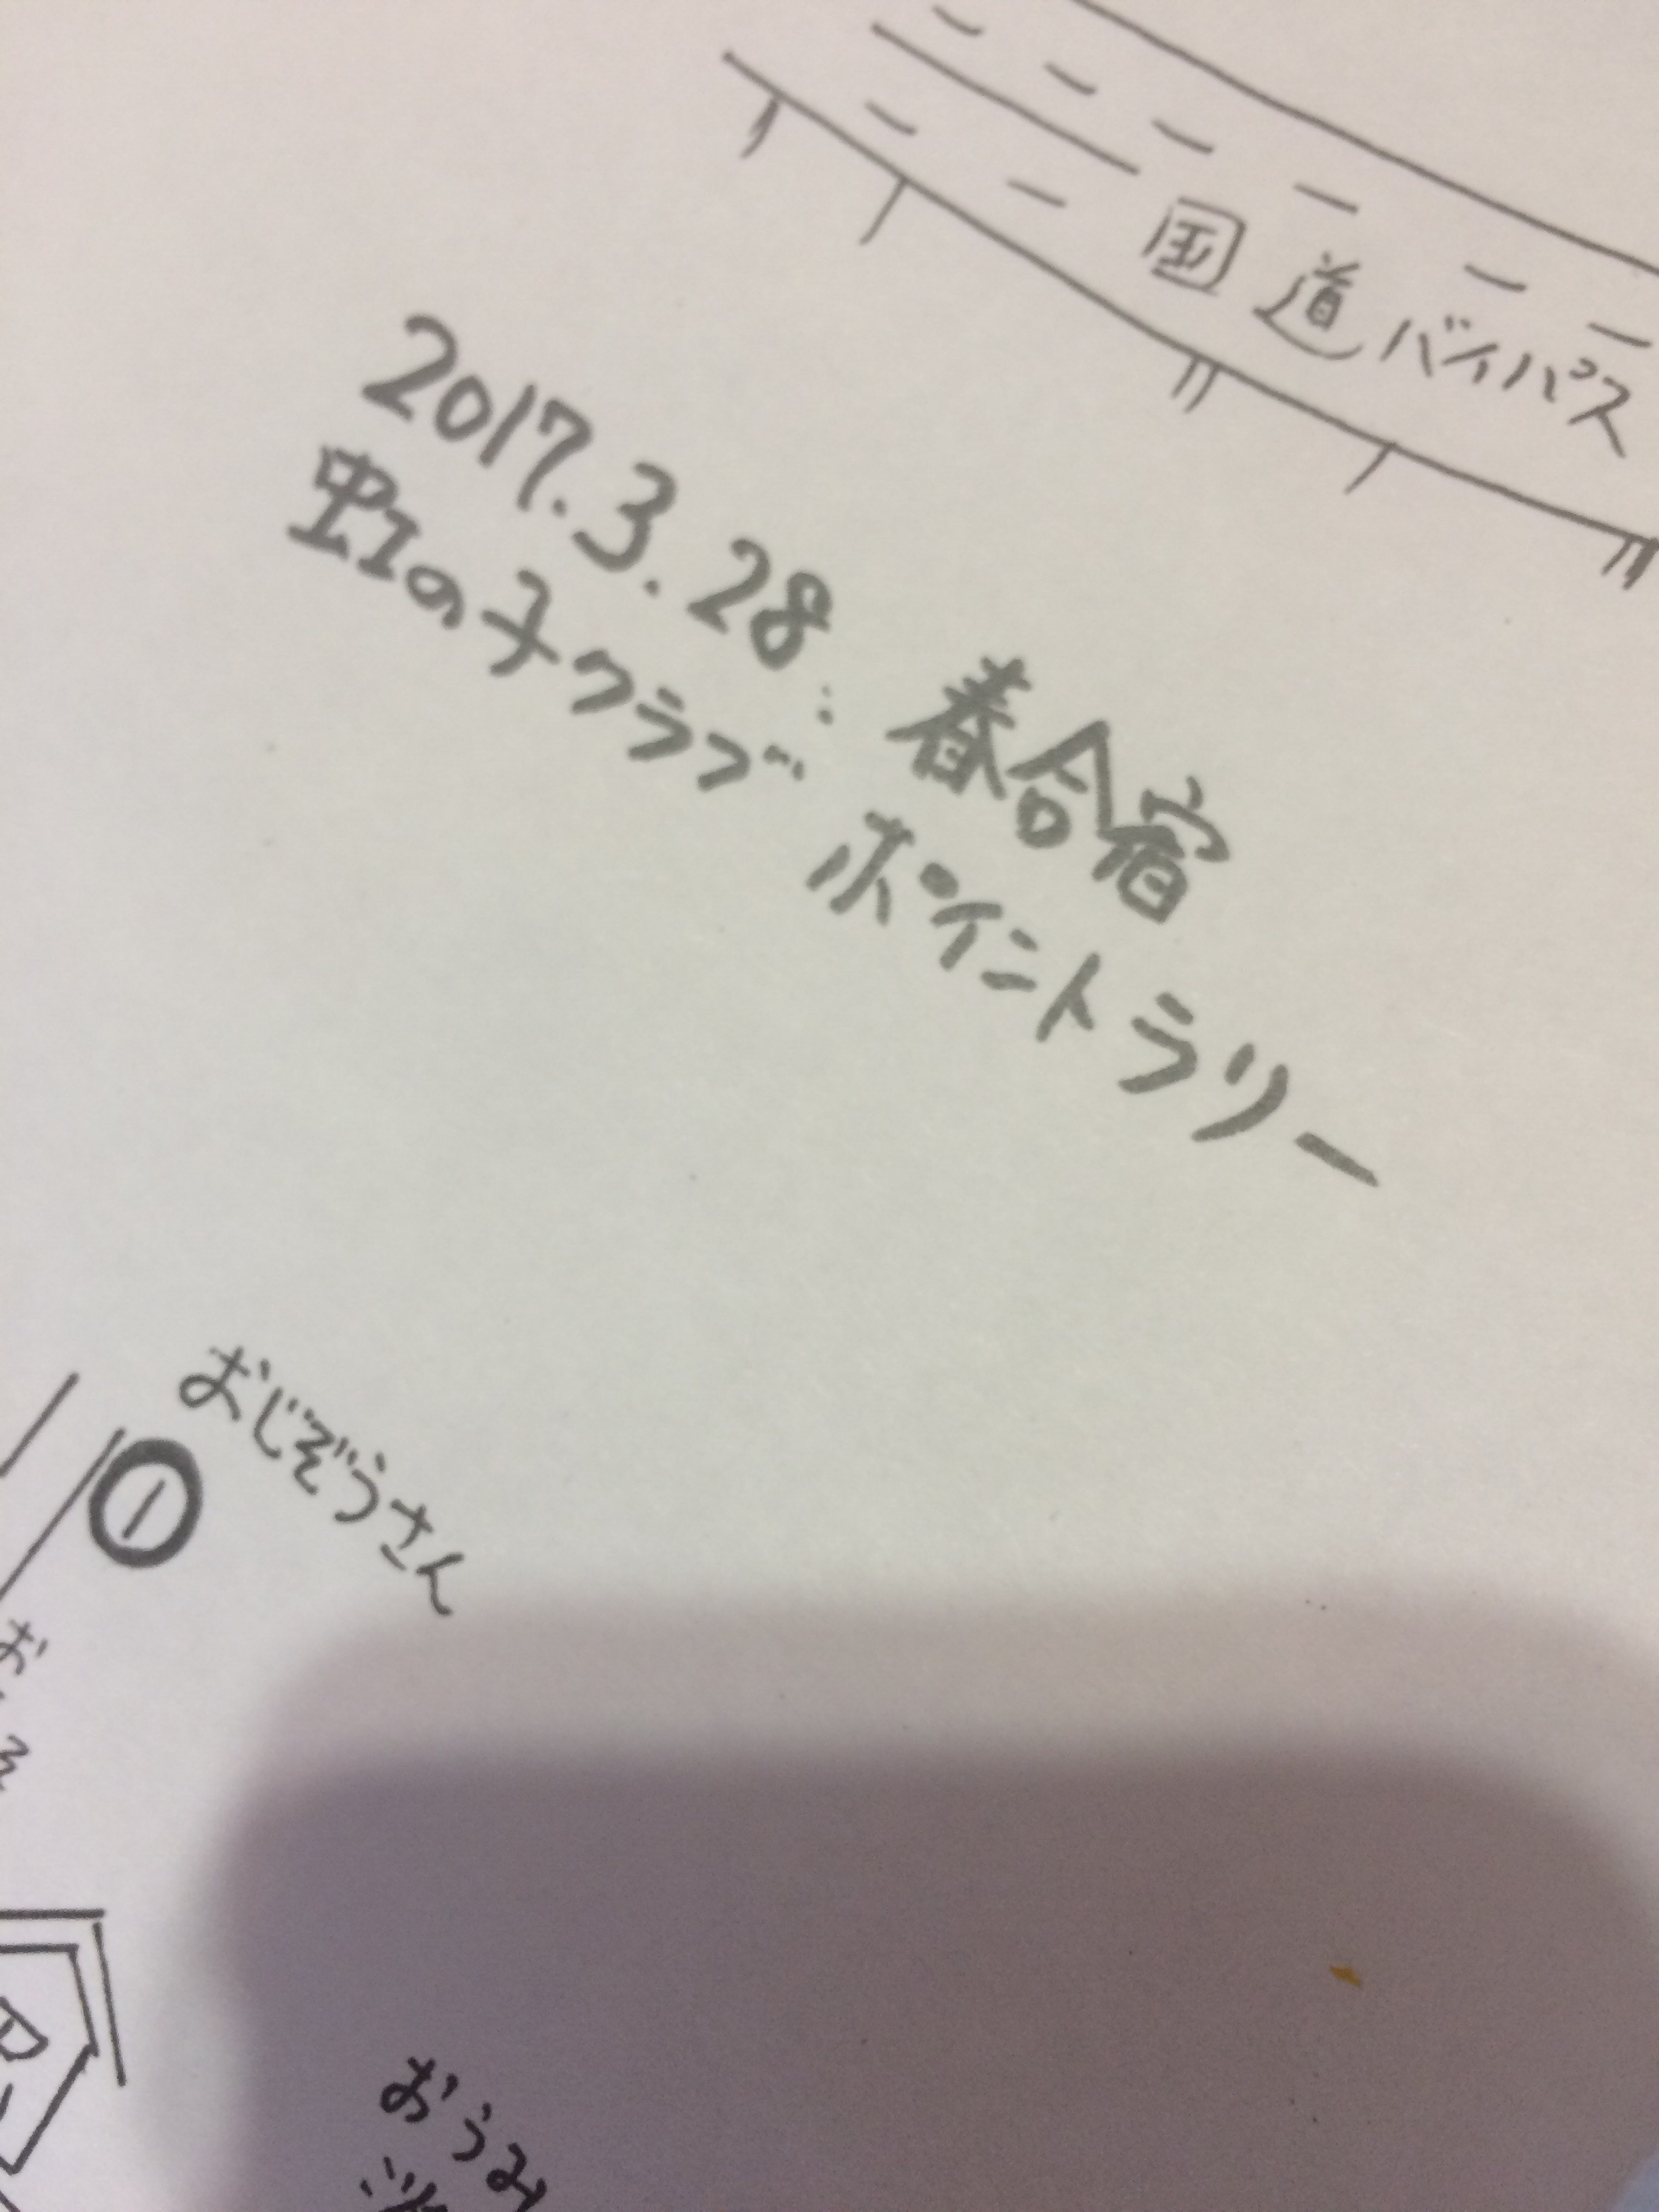 国道バイパス
2017.3.28: 春合宿
虹の子クラブ ポイントラリー
おじぞうさん
1
おうみ